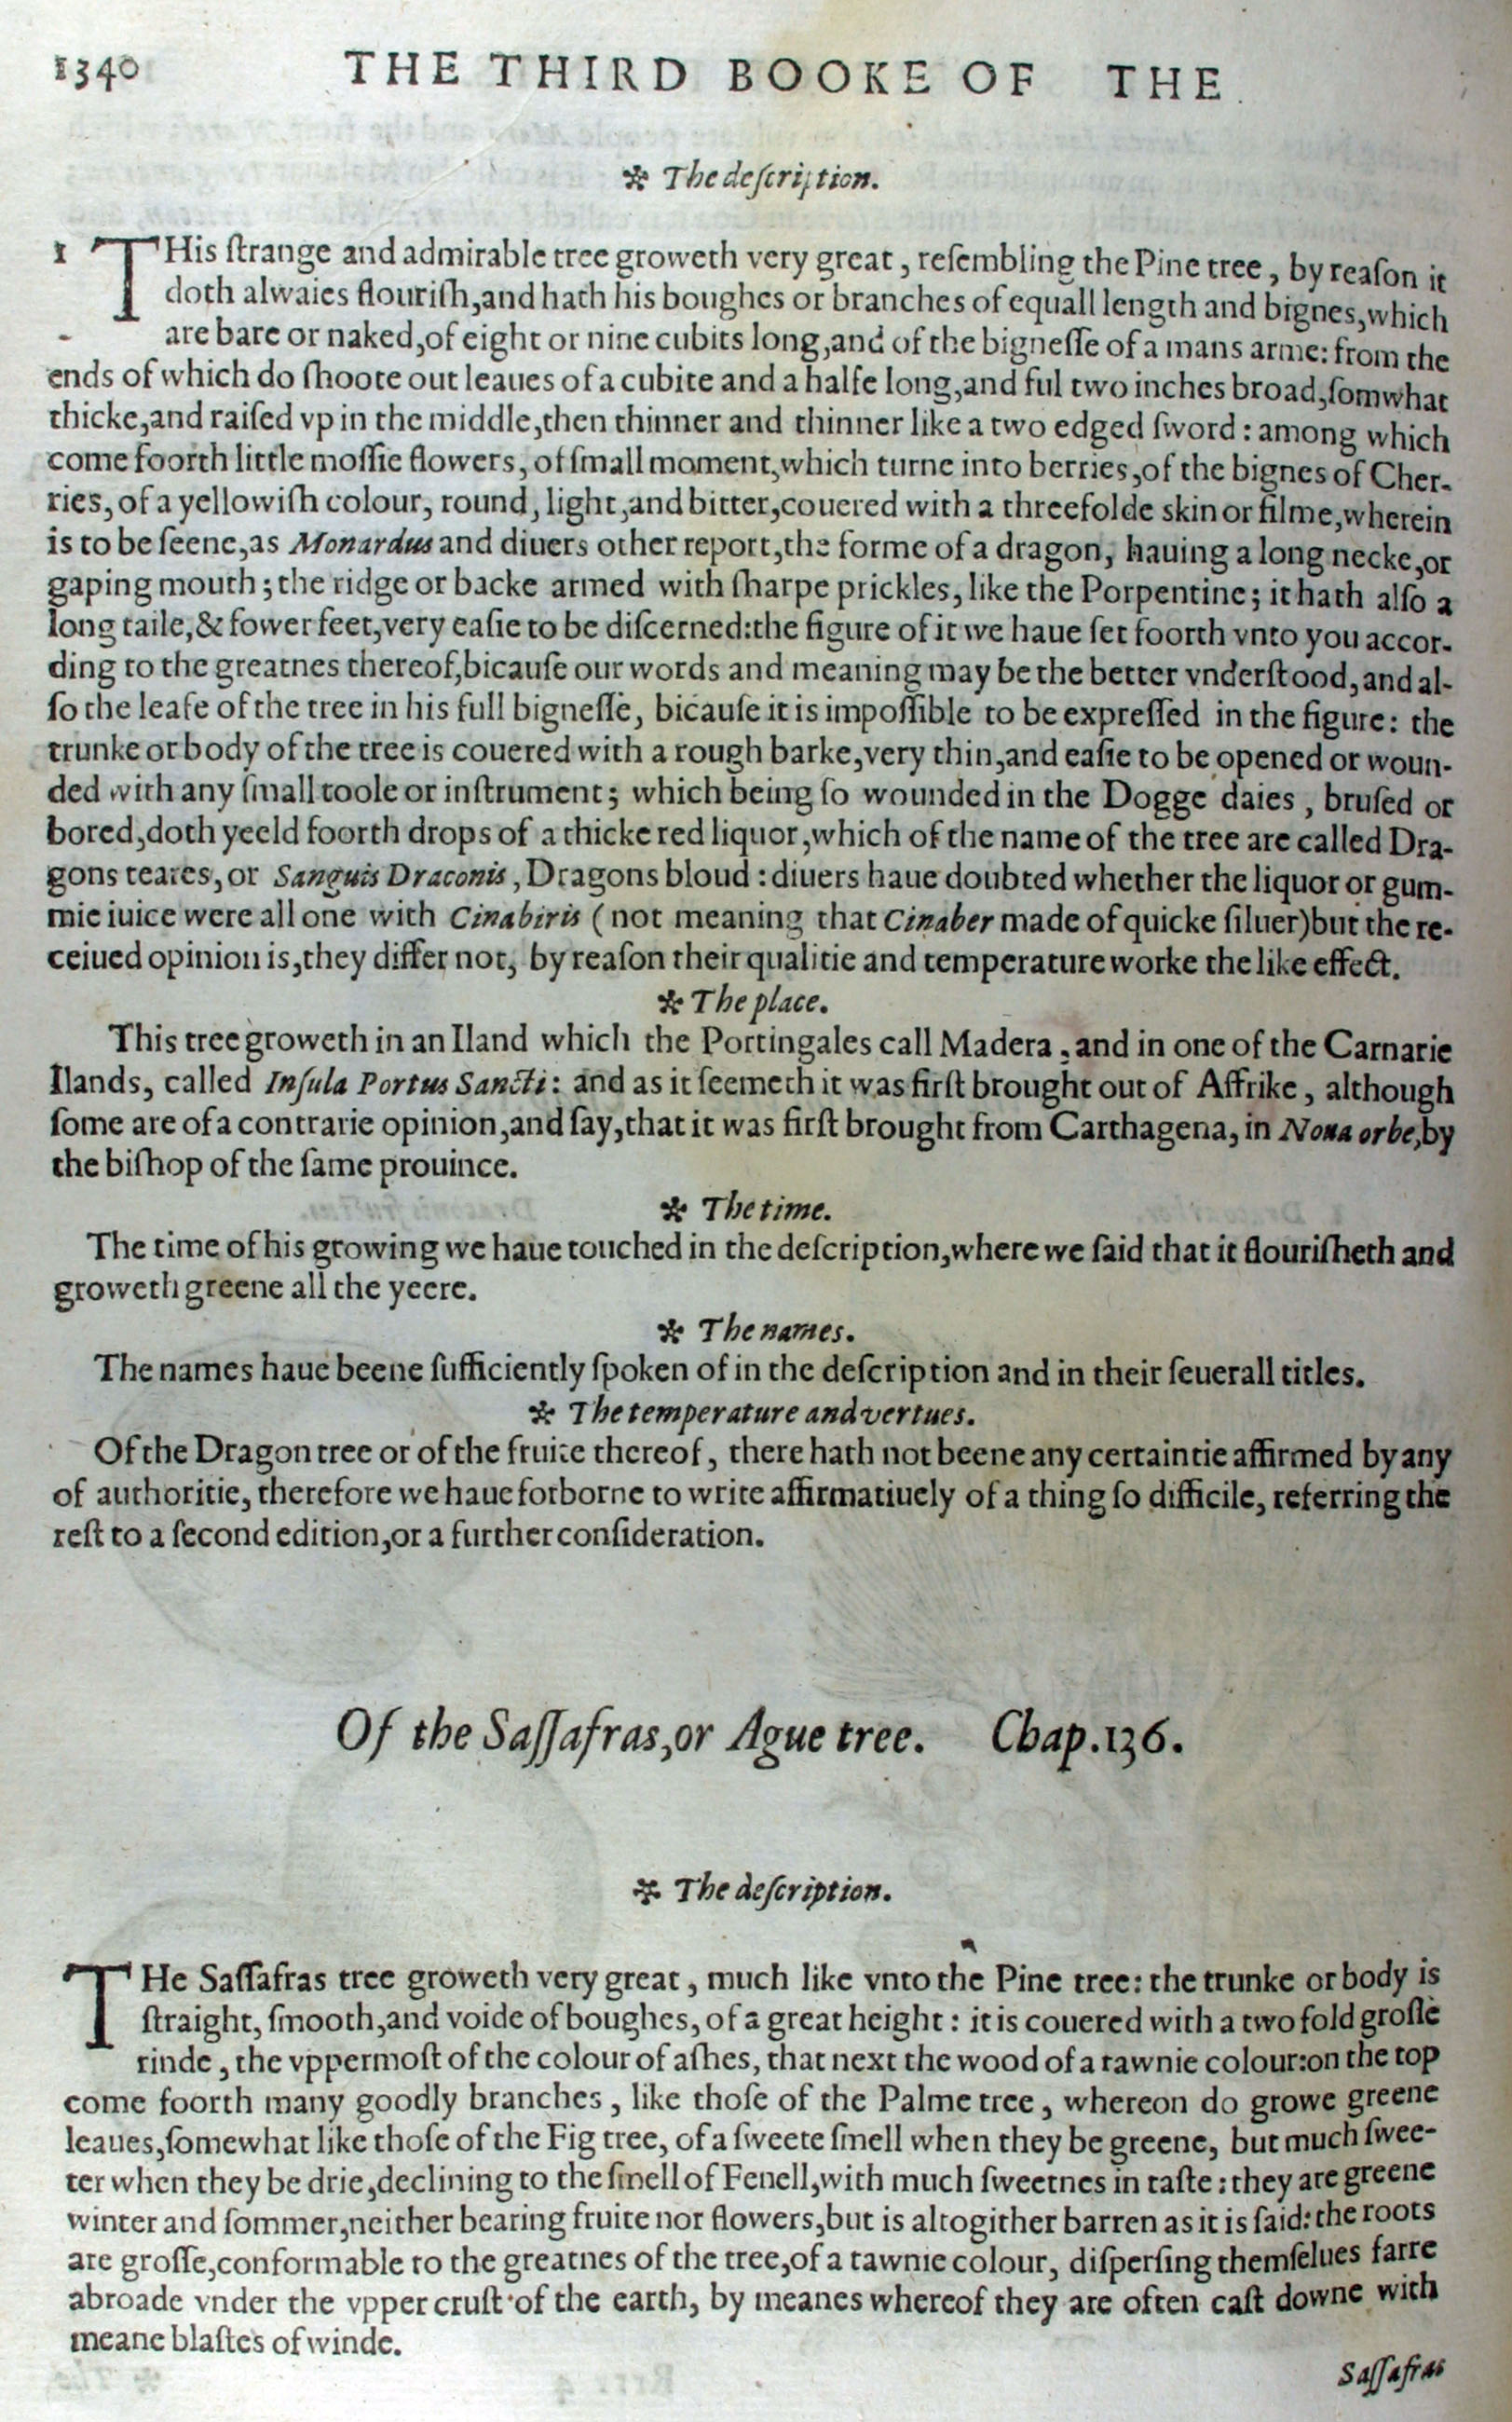 1340 THE THIRD BOOKE OF THE
✲ The deſcription.
1 THis ſtrange and admirable tree groweth very great, reſembling the Pine tree, by reaſon it
doth alwaies flouriſh, and hath his boughes or branches of equall length and bignes, which
are bare or naked, of eight or nine cubits long, and of the bigneſſe of a mans arme: from the
ends of which do ſhoote out leaues of a cubite and a halfe long, and ful two inches broad, ſomwhat
thicke, and raiſed vp in the middle, then thinner and thinner like a two edged ſword: among which
come foorth little moſſie flowers, of ſmall moment, which turne into berries, of the bignes of Cher-
ries, of a yellowiſh colour, round, light, and bitter, couered with a threefolde skin or filme, wherein
is to be ſeene, as Monardus and diuers other report, the forme of a dragon, hauing a long necke, or
gaping mouth; the ridge or backe armed with ſharpe prickles, like the Porpentine; it hath alſo a
long taile, & fower feet, very eaſie to be diſcerned: the figure of it we haue ſet foorth vnto you accor-
ding to the greatnes thereof, bicauſe our words and meaning may be the better vnderſtood, and al-
ſo the leafe of the tree in his full bigneſſe, bicauſe it is impoſſible to be expreſſed in the figure: the
trunke or body of the tree is couered with a rough barke, very thin, and eaſie to be opened or woun-
ded with any ſmall toole or inſtrument; which being ſo wounded in the Dogge daies, bruſed or
bored, doth yeeld foorth drops of a thicke red liquor, which of the name of the tree are called Dra-
gons teares, or Sanguis Draconis, Dragons bloud: diuers haue doubted whether the liquor or gum-
mie iuice were all one with Cinabiris (not meaning that Cinaber made of quicke ſiluer) but the re-
ceiued opinion is, they differ not, by reaſon their qualitie and temperature worke the like effect.
✲ The place.
This tree groweth in an Iland which the Portingales call Madera, and in one of the Carnarie
Ilands, called Inſula Portus Sancti: and as it ſeemeth it was firſt brought out of Affrike, although
ſome are of a contrarie opinion, and ſay, that it was firſt brought from Carthagena, in Noua orbe, by
the biſhop of the ſame prouince.
✲ The time.
The time of his growing we haue touched in the deſcription, where we ſaid that it flouriſheth and
groweth greene all the yeere.
✲ The names.
The names haue beene ſufficiently ſpoken of in the deſcription and in their ſeuerall titles.
✲ The temperature and vertues.
Of the Dragon tree or of the fruite thereof, there hath not beene any certaintie affirmed by any
of authoritie, therefore we haue forborne to write affirmatiuely of a thing ſo difficile, referring the
reſt to a ſecond edition, or a further conſideration.
Of the Saſſafras, or Ague tree. Chap. 136.
✲ The deſcription.
THe Saſſafras tree groweth very great, much like vnto the Pine tree: the trunke or body is
ſtraight, ſmooth, and voide of boughes, of a great height: it is couered with a twofold groſſe
rinde, the vppermoſt of the colour of aſhes, that next the wood of a tawnie colour: on the top
come foorth many goodly branches, like thoſe of the Palme tree, whereon do growe greene
leaues, ſomewhat like thoſe of the Fig tree, of a ſweete ſmell when they be greene, but much ſwee-
ter when they be drie, declining to the ſmell of Fenell, with much ſweetnes in taſte: they are greene
winter and ſommer, neither bearing fruite nor flowers, but is altogither barren as it is ſaid: the roots
are groſſe, conformable to the greatnes of the tree, of a tawnie colour, diſperſing themſelues farre
abroade vnder the vpper cruſt of the earth, by meanes whereof they are often caſt downe with
meane blaſtes of winde.
Saſſafras